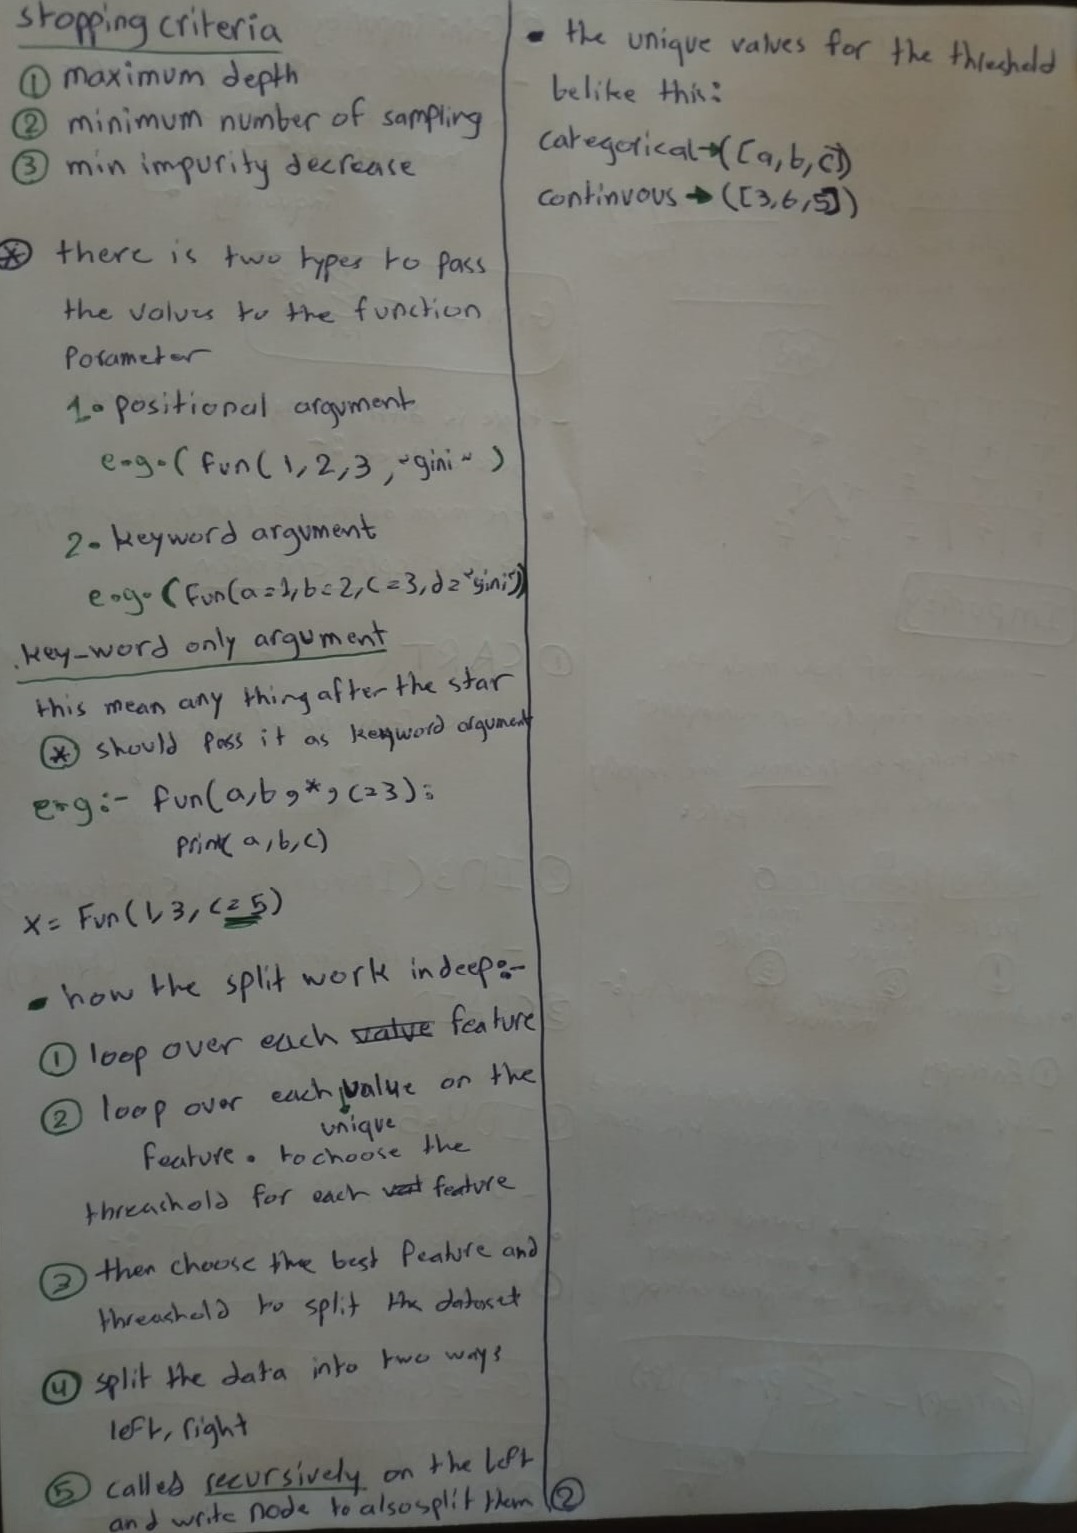 stopping criteria
① maximum depth
② minimum number of sampling
③ min impurity decrease
⊛ there is two types to pass
the values to the function
Parameter
1. positional argument
e.g. ( fun( 1, 2, 3 , "gini" )
2. keyword argument
e.g. ( Fun(a=1, b=2, c=3, d="gini"))
key-word only argument
this mean any thing after the star
⊛ should pass it as keyword argument
e.g :- fun(a, b, *, c=3):
print( a, b, c)
X = Fun( 1, 3, c=5)
• how the split work in deep:-
① loop over each value feature
② loop over each value on the
unique
feature. to choose the
threashold for each feature
③ then choose the best feature and
threashold to split the dataset
④ split the data into two ways
left, right
⑤ called recursively on the left
and write node to also split them
• the unique values for the threshold
belike this:
categorical → ([a, b, c])
continuous → ([3, 6, 5])
②